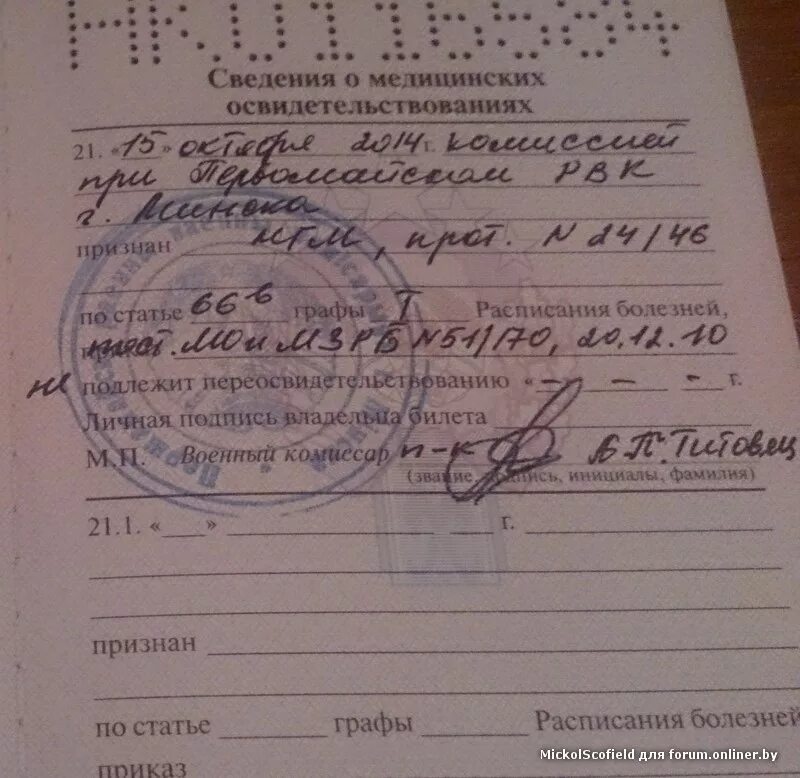 Сведения о медицинских
освидетельствованиях
21. «15» октября 2014 г. комиссией
при Первомайском РВК
г. Минска
признан НГМ, прот. N 24/46
по статье 66 в графы I Расписания болезней,
пост. МО и МЗ РБ N 51/170, 20.12.10
не подлежит переосвидетельствованию «-» - - г.
Личная подпись владельца билета
М.П. Военный комиссар п-к В.П. Титовец
(звание, подпись, инициалы, фамилия)
21.1. «___» ___ г.
признан
по статье ___ графы ___ Расписания болезней
приказ
MickolScofield для forum.onliner.by